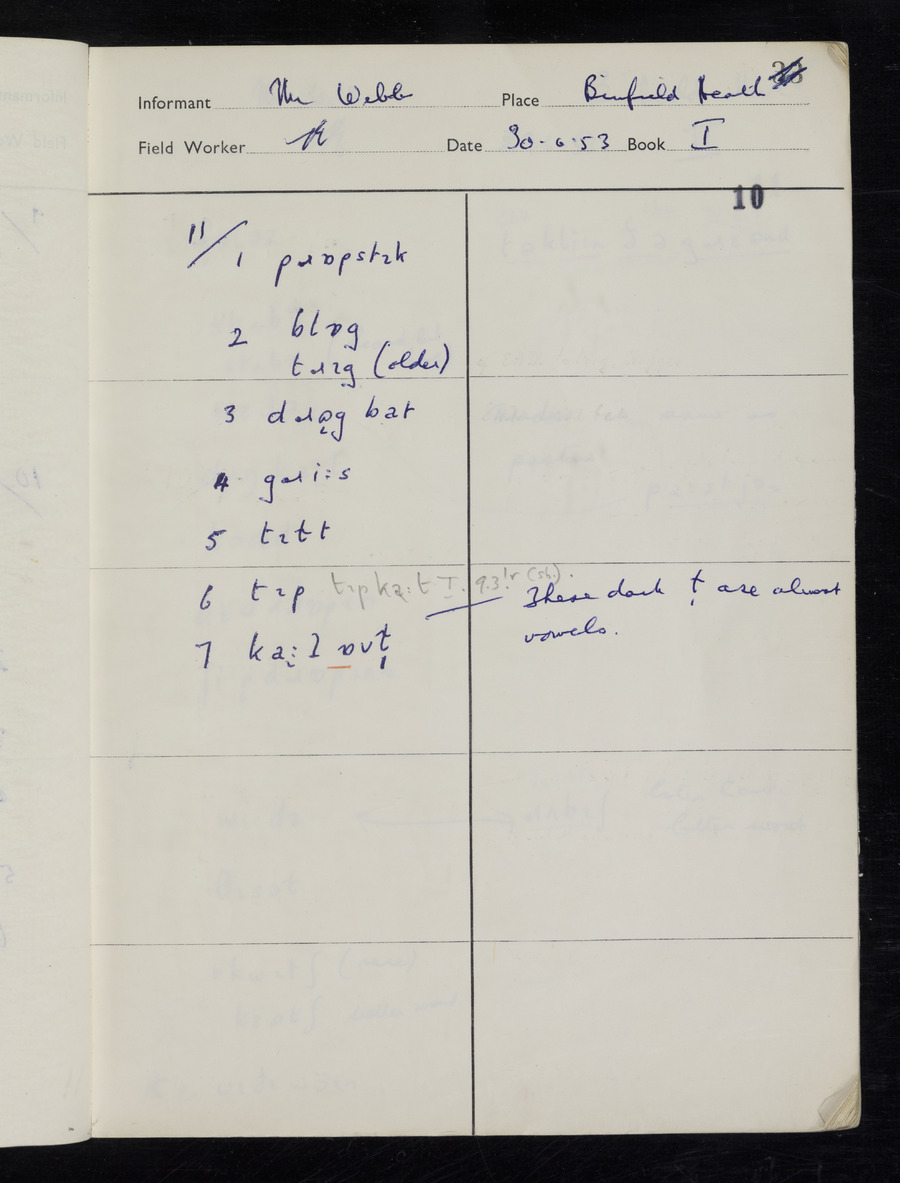 Informant Mr Webb Place Binfield Heath
Field Worker Date 30.6.53 Book I
10
11/
1 pɹɒpstɪk
2 blɒg
tɹɪg (older)
3 dɹɒ̜g bat
4 gɹiːs
5 tɪɫt
6 tɪp tɪpkạːt I. 9.3.
7 kạːɪ ɒvɫ̩
These dark ɫ̩ are almost
vowels.